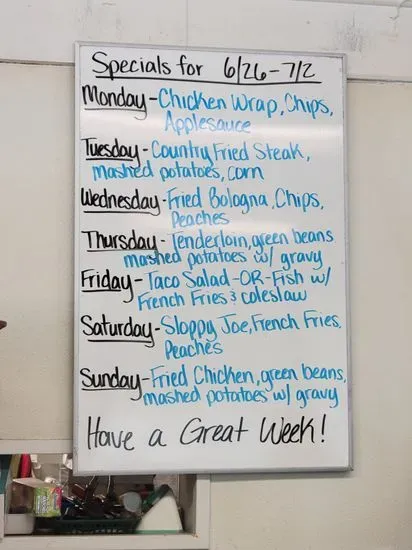 Specials for 6/26-7/2
Monday-Chicken Wrap, Chips,
Applesauce
Tuesday-Country Fried Steak,
mashed potatoes, corn
Wednesday-Fried Bologna, Chips,
Peaches
Thursday-Tenderloin, green beans
mashed potatoes w/ gravy
Friday-Taco Salad-OR-Fish w/
French Fries & coleslaw
Saturday-Sloppy Joe, French Fries,
Peaches
Sunday-Fried Chicken, green beans,
mashed potatoes w/ gravy
Have a Great Week!